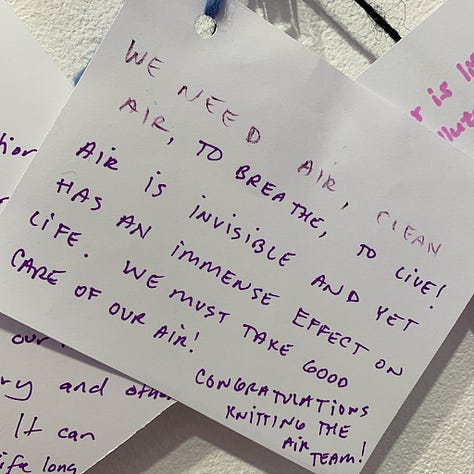 WE NEED AIR, CLEAN
AIR, TO BREATHE, TO LIVE!
AIR IS INVISIBLE AND YET
HAS AN IMMENSE EFFECT ON
LIFE. WE MUST TAKE GOOD
CARE OF OUR AIR!
CONGRATULATIONS
KNITTING THE
AIR TEAM!
our
ry and
It can
ife long
r is